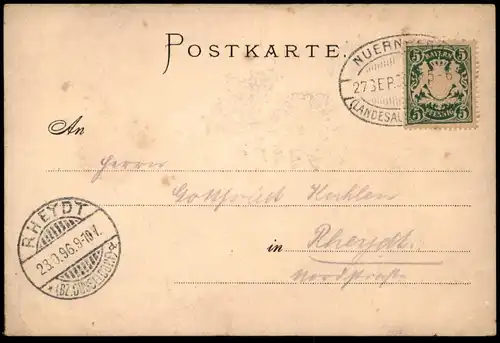 POSTKARTE.
NUERN
27 SEP.
(LANDESAU
5 BAYERN 5
5 PFENNIG 5
An
Herrn
Gottfried
in Rheydt.
Nordstraße
RHEYDT
23.9.96.9-10V.
*(BZ.DÜSSELDORF)*